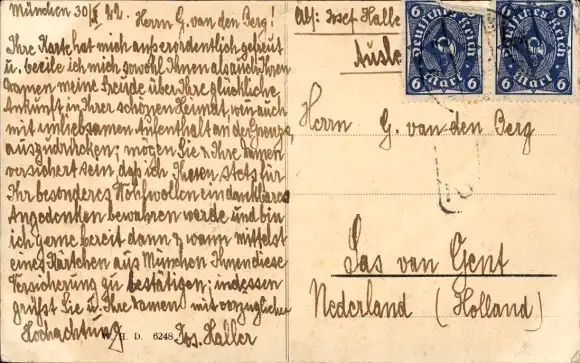 München 30/X 22.
Herrn G. van den Berg!
Ihre Karte hat mich außerordentlich gefreut
u. beeile ich mich sowohl Ihnen als auch Ihren
Damen meine Freude über Ihre glückliche
Ankunft in Ihrer schönen Heimat, wenn auch
mit unliebsamen Aufenthalt an der Grenze,
auszudrücken; mögen Sie & Ihre Damen
versichert sein daß ich Ihnen stets für
Ihr besonderes Wohlwollen ein dankbares
Angedenken bewahren werde und bin
ich gerne bereit dann & wann mittelst
eines Kärtchen aus München Ihnen diese
Versicherung zu bestätigen; indessen
grüßt Sie u. Ihre Damen mit vorzüglicher
Hochachtung Jos. Haller
H. D. 6248
Abs: Josef Halle
Ausla
6 Deutsches Reich 6
6 Mark 6
6 Deutsches Reich 6
6 Mark 6
Herrn G. van den Berg
Sas van Gent
Nederland (Holland)